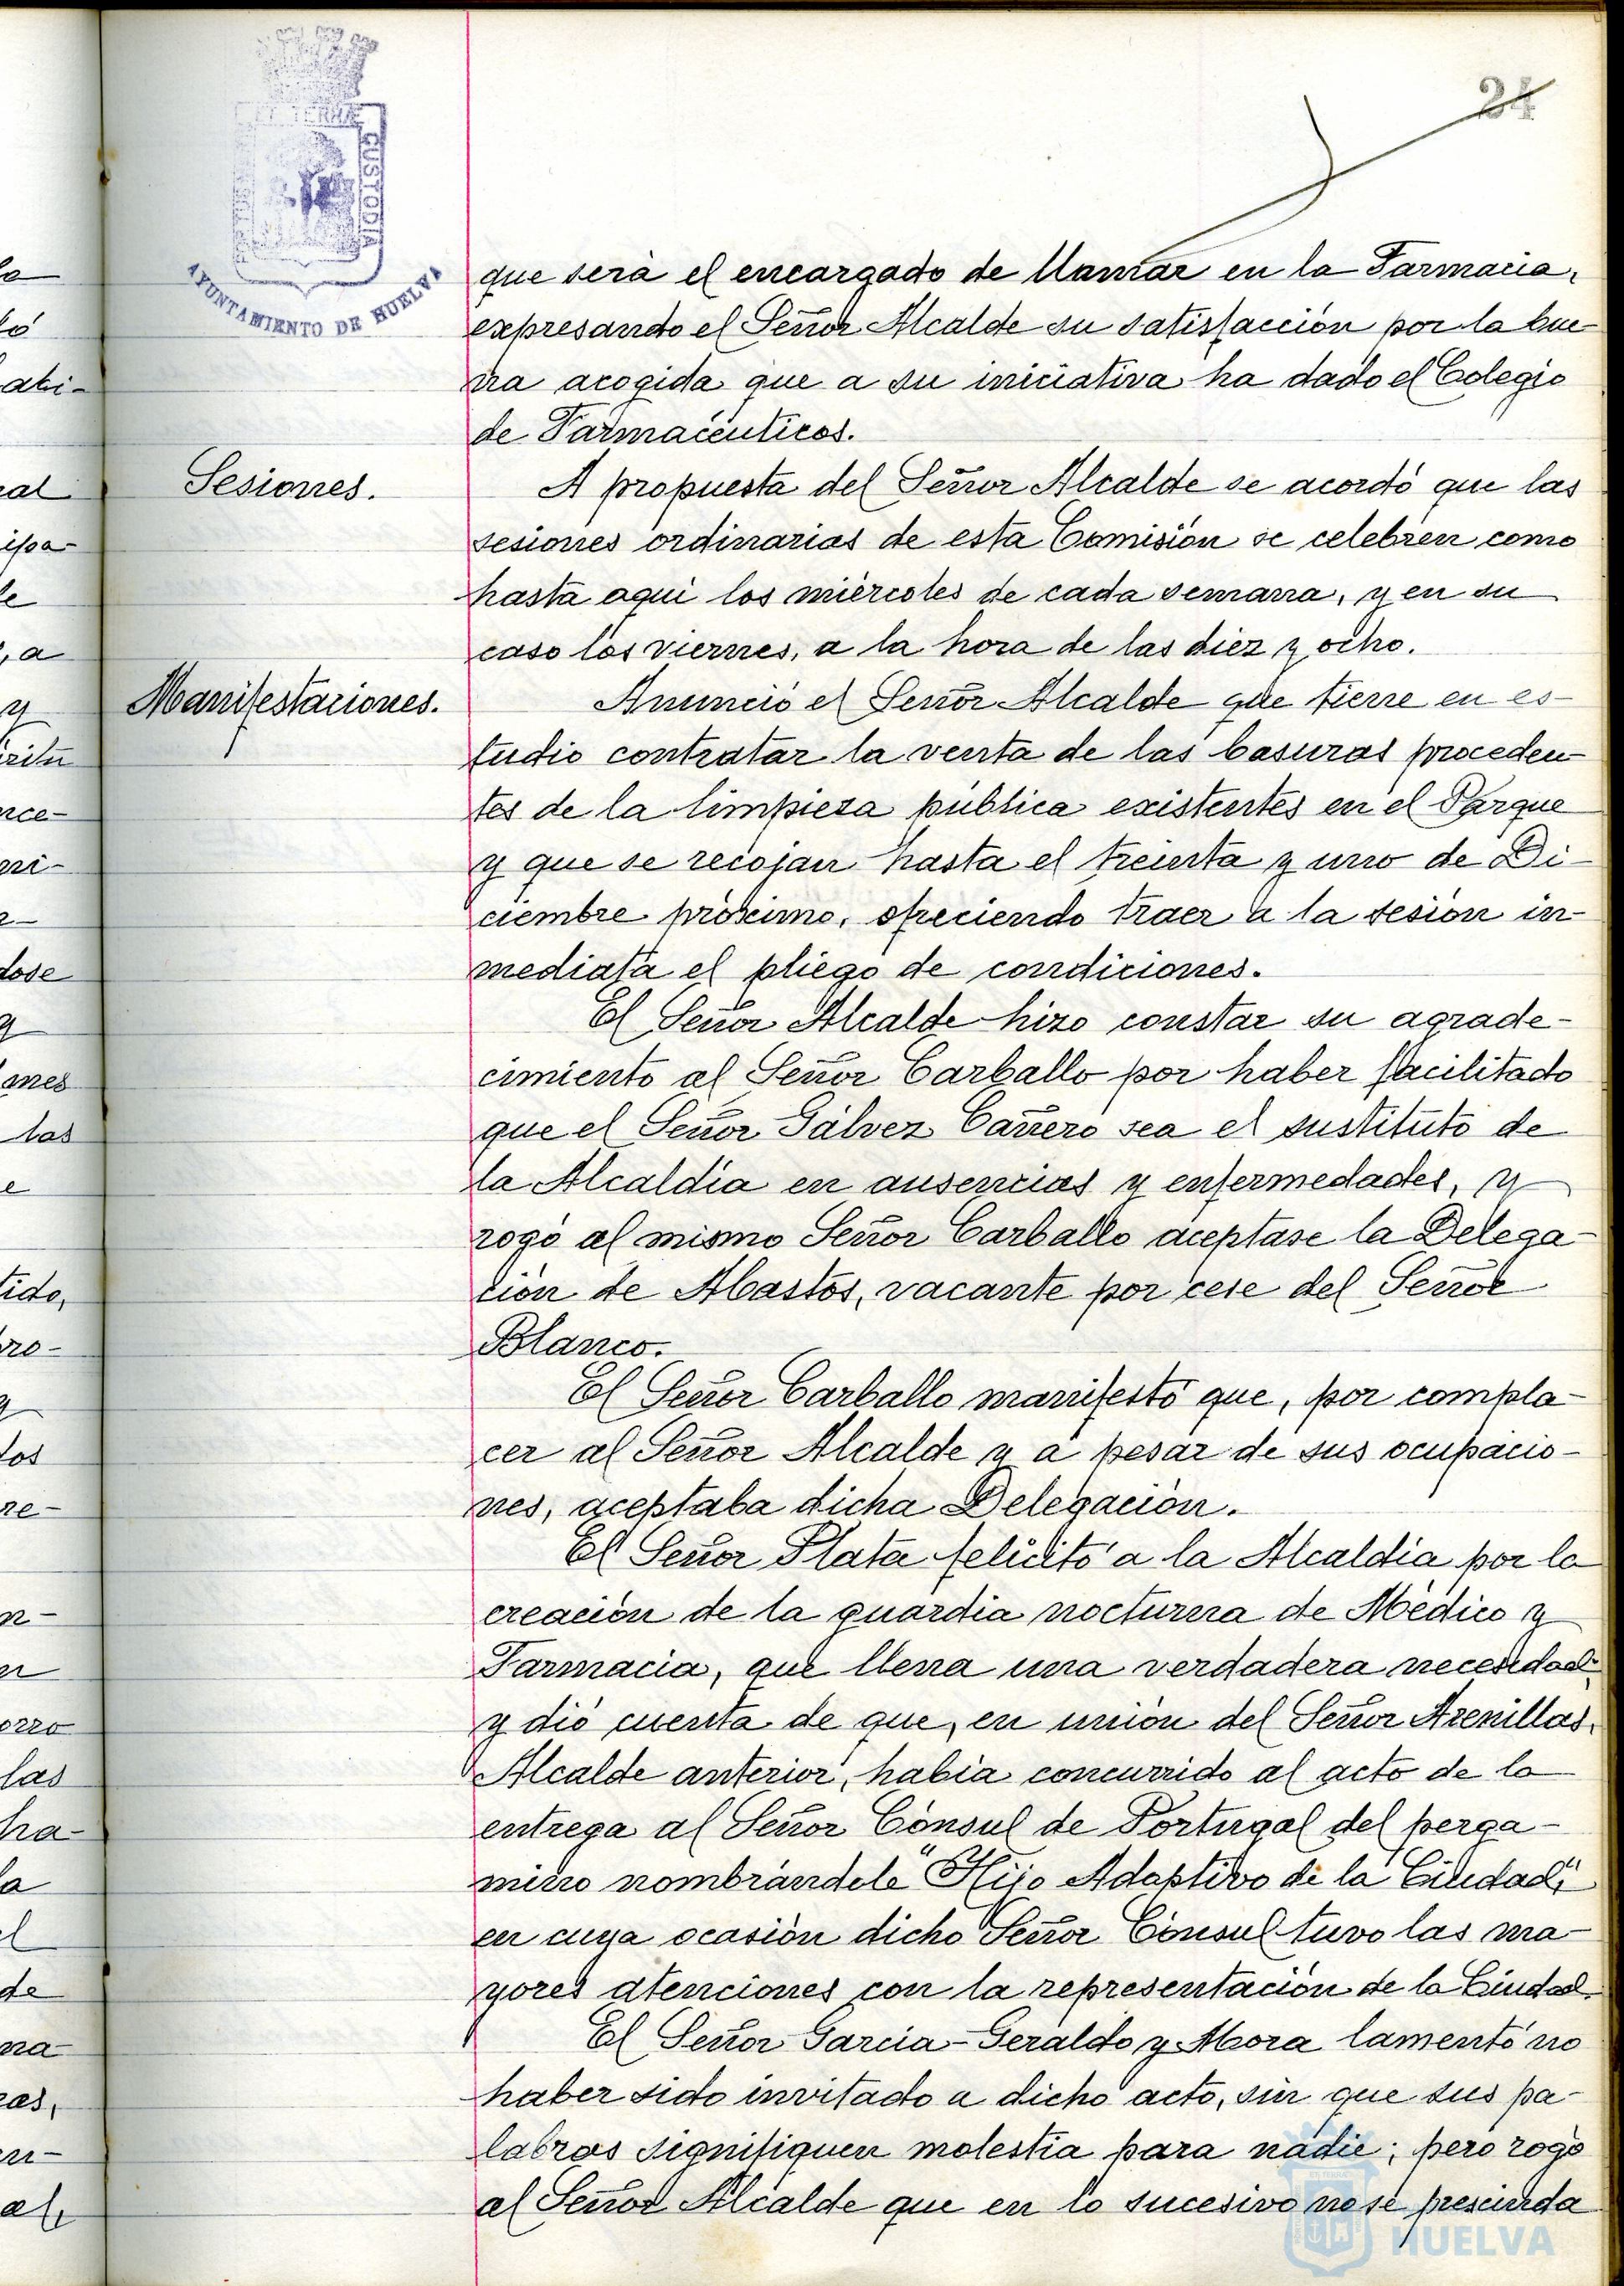 24
TERRÆ
CUSTODIA
AYUNTAMIENTO DE HUELVA
que será el encargado de llamar en la Farmacia,
expresando el Señor Alcalde su satisfacción por la bue-
na acogida que a su iniciativa ha dado el Colegio
de Farmacéuticos.
Sesiones.
A propuesta del Señor Alcalde se acordó que las
sesiones ordinarias de esta Comisión se celebren como
hasta aquí los miércoles de cada semana, y en su
caso los viernes, a la hora de las diez y ocho.
Manifestaciones.
Anunció el Señor Alcalde que tiene en es-
tudio contratar la venta de las basuras proceden-
tes de la limpieza pública existentes en el Parque
y que se recojan hasta el treinta y uno de Di-
ciembre próximo, ofreciendo traer a la sesión in-
mediata el pliego de condiciones.
El Señor Alcalde hizo constar su agrade-
cimiento al Señor Carballo por haber facilitado
que el Señor Gálvez Cañero sea el sustituto de
la Alcaldía en ausencias y enfermedades, y
rogó al mismo Señor Carballo aceptase la Delega-
ción de Abastos, vacante por cese del Señor
Blanco.
El Señor Carballo manifestó que, por compla-
cer al Señor Alcalde y a pesar de sus ocupacio-
nes, aceptaba dicha Delegación.
El Señor Plata felicitó a la Alcaldía por la
creación de la guardia nocturna de Médico y
Farmacia, que llena una verdadera necesidad,
y dió cuenta de que, en unión del Señor Arenillas,
Alcalde anterior, había concurrido al acto de la
entrega al Señor Cónsul de Portugal del perga-
mino nombrándole "Hijo Adoptivo de la Ciudad",
en cuya ocasión dicho Señor Cónsul tuvo las ma-
yores atenciones con la representación de la Ciudad.
El Señor García-Geraldo y Mora lamentó no
haber sido invitado a dicho acto, sin que sus pa-
labras signifiquen molestia para nadie; pero rogó
al Señor Alcalde que en lo sucesivo no se prescinda
HUELVA